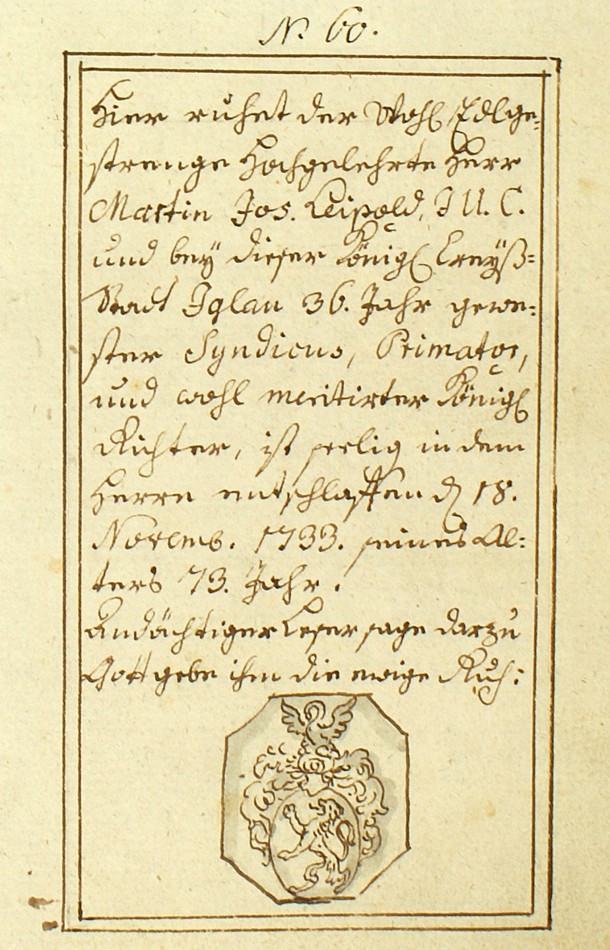 N. 60.
Hier ruhet der Wohl Edlge=
strenge Hochgelehrte Herr
Martin Jos. Leipold, J U. C.
und bey dieser Königl Creyß=
Stadt Iglau 36. Jahr gewe=
ster Syndicus, Primator,
und wohl meritirter Königl
Richter, ist seelig in dem
Herrn entschlaffen d 18.
Novemb. 1733. seines Al=
ters 73. Jahr.
Andächtiger Leser sage darzu
Gott gebe ihm die ewige Ruh: